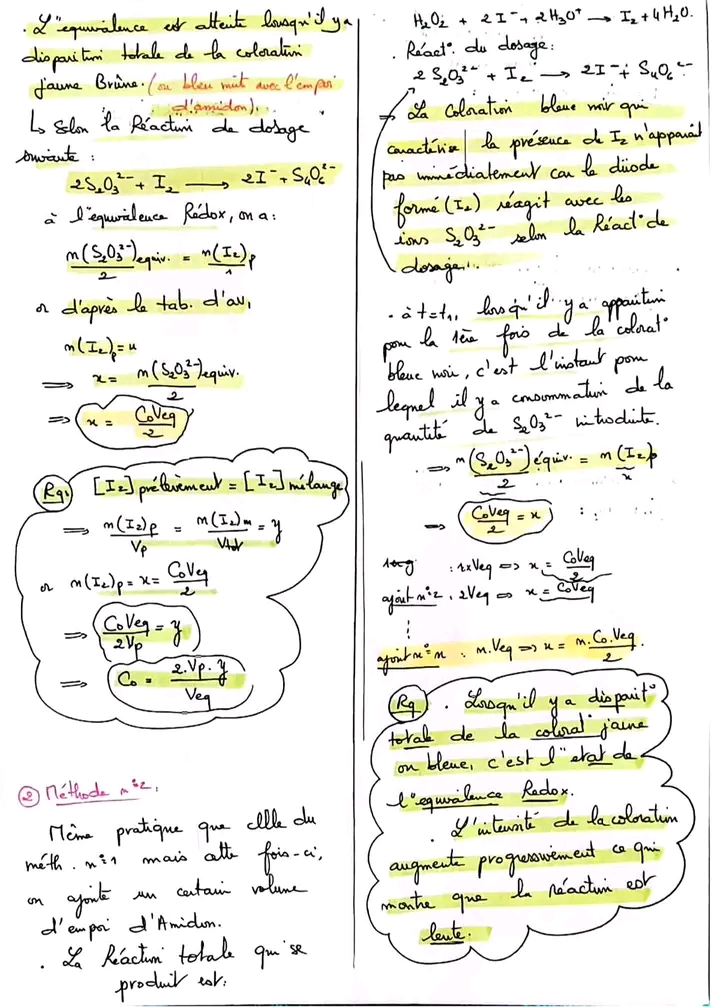 . L'équivalence est atteinte lorsqu'il y a
disparition totale de la coloration
jaune Brune. (ou bleu nuit avec l'empoi
d'amidon).
↳ Selon la Réaction de dosage
suivante :
2S₂O₃²⁻ + I₂ ⟶ 2I⁻ + S₄O₆²⁻
à l'équivalence Rédox, on a :
n(S₂O₃²⁻)équiv. / 2 = n(I₂)p / 1
or d'après le tab. d'av,
n(I₂)p = x
⟹ x = n(S₂O₃²⁻)équiv. / 2
⟹ x = CoVeq / 2
Rq: [I₂] prélèvement = [I₂] mélange
⟹ n(I₂)p / Vp = n(I₂)m / Vtot = y
or n(I₂)p = x = CoVeq / 2
⟹ CoVeq / 2Vp = y
⟹ Co = 2.Vp.y / Veq
② Méthode n°2.
Même pratique que celle du
méth. n°1 mais cette fois-ci,
on ajoute un certain volume
d'empoi d'Amidon.
. La Réaction totale qui se
produit est:
H₂O₂ + 2I⁻ + 2H₃O⁺ ⟶ I₂ + 4H₂O.
. Réact° du dosage:
2 S₂O₃²⁻ + I₂ ⟶ 2I⁻ + S₄O₆²⁻
⇒ La Coloration bleue noir qui
caractérise la présence de I₂ n'apparait
pas immédiatement car le diiode
formé (I₂) réagit avec les
ions S₂O₃²⁻ selon la Réact° de
dosage...
. à t=t₁, lorsqu'il y a apparition
pour la 1ère fois de la colorat°
bleue noir, c'est l'instant pour
lequel il y a consommation de la
quantité de S₂O₃²⁻ introduite.
⟹ n(S₂O₃²⁻)équiv. / 2 = n(I₂)p
x
⟹ CoVeq / 2 = x
: 1xVeq ⟹ x = CoVeq / 2
ajout n°2 : 2Veq ⟹ x = CoVeq
⋮
ajout n°n : n.Veq ⟹ x = n.Co.Veq / 2
Rq . Lorsqu'il y a disparit°
totale de la colorat° jaune
ou bleue, c'est l'état de
l'équivalence Redox.
. L'intensité de la coloration
augmente progressivement ce qui
montre que la réaction est
lente.